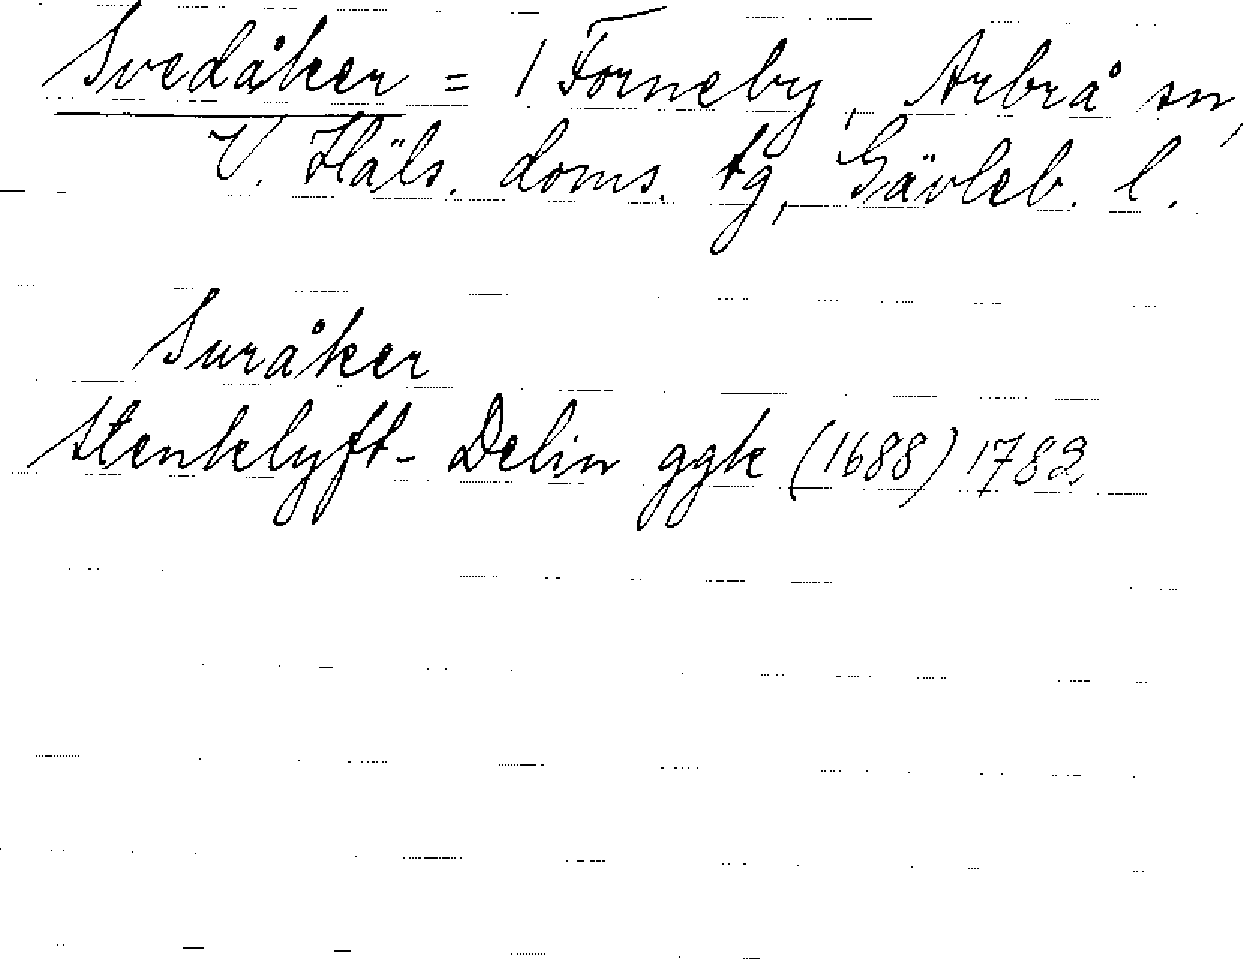 Svedåker = 1 Forneby, Arbrå sn,
V. Häls. doms. tg, Gävleb. l.
Suråker
Stenklyft- Delin ggk (1688) 1782